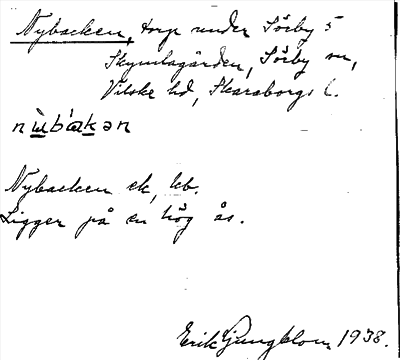 Nybacken, torp under Sörby 5
Skymlagården, Sörby sn,
Vilske hd, Skaraborgs l.
nẁbákən
Nybacken ek, kb.
Ligger på en hög ås.
Erik Ljungblom 1938.